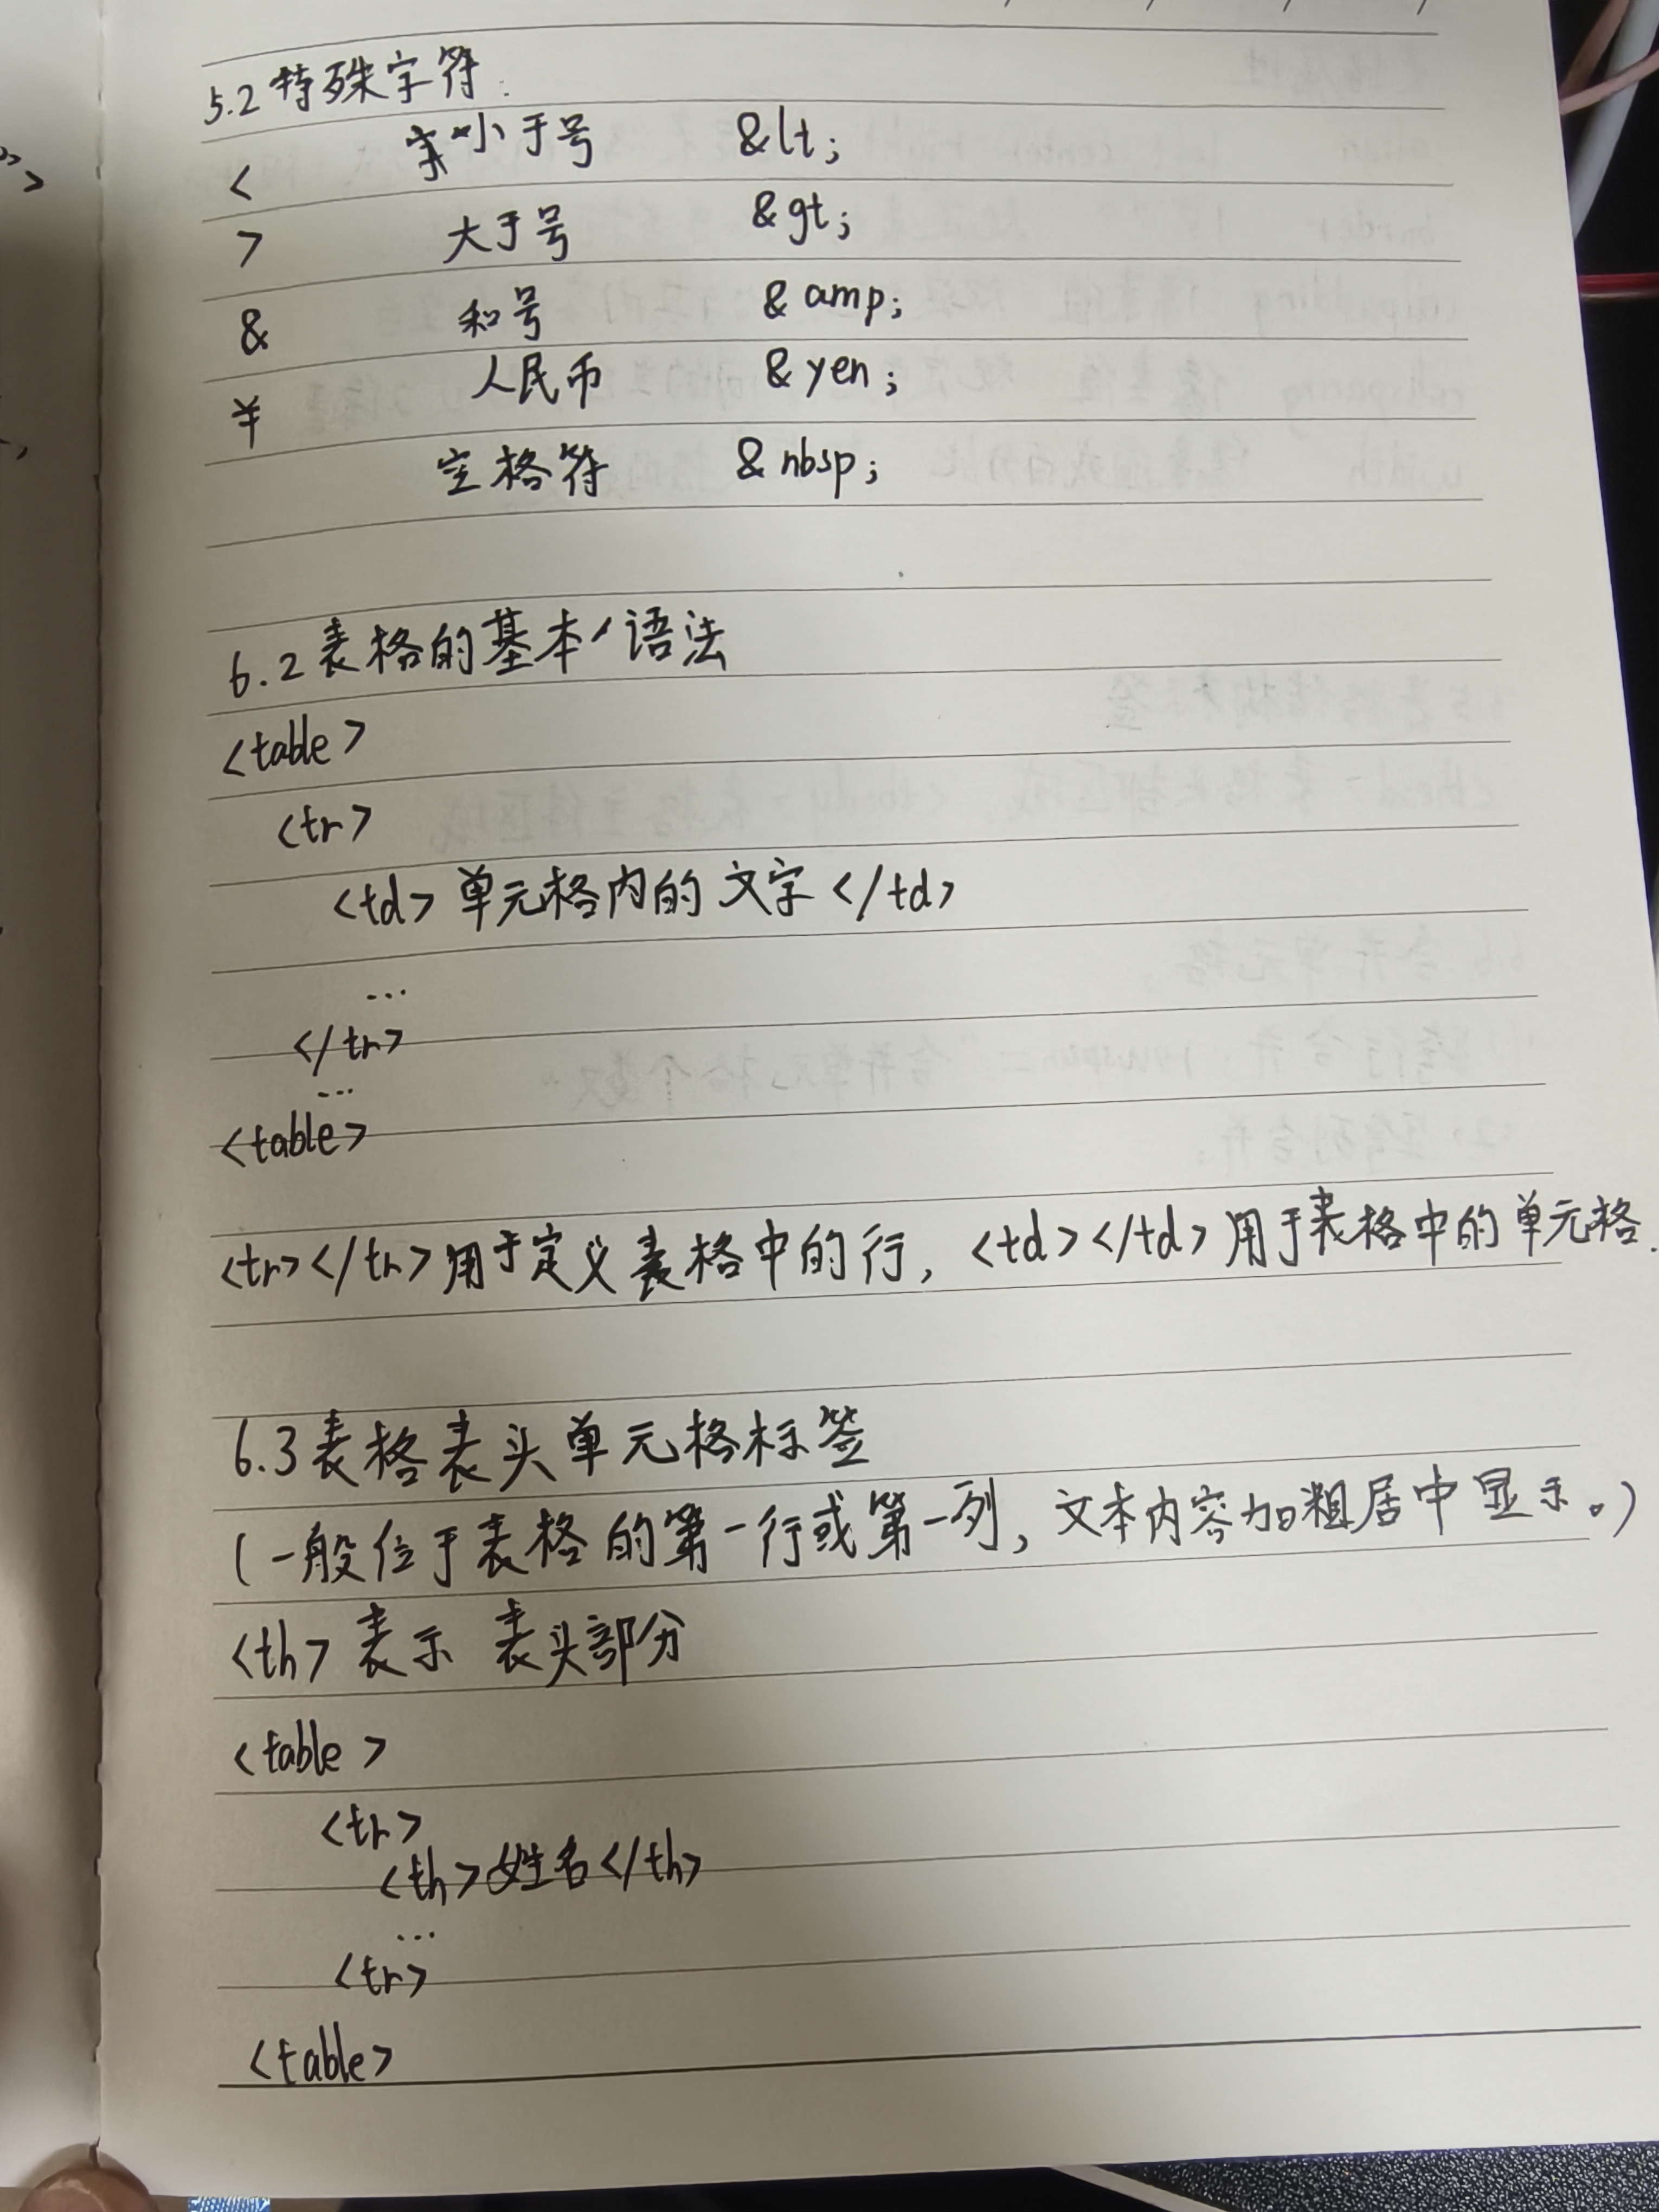 5.2 特殊字符:
< 小于号 &lt;
> 大于号 &gt;
& 和号 &amp;
¥ 人民币 &yen;
空格符 &nbsp;
6.2 表格的基本语法
<table>
<tr>
<td> 单元格内的文字 </td>
...
</tr>
...
<table>
<tr></tr>用于定义表格中的行, <td></td>用于表格中的单元格.
6.3 表格表头单元格标签
(一般位于表格的第一行或第一列, 文本内容加粗居中显示。)
<th> 表示 表头部分
<table>
<tr>
<th>姓名</th>
...
<tr>
<table>